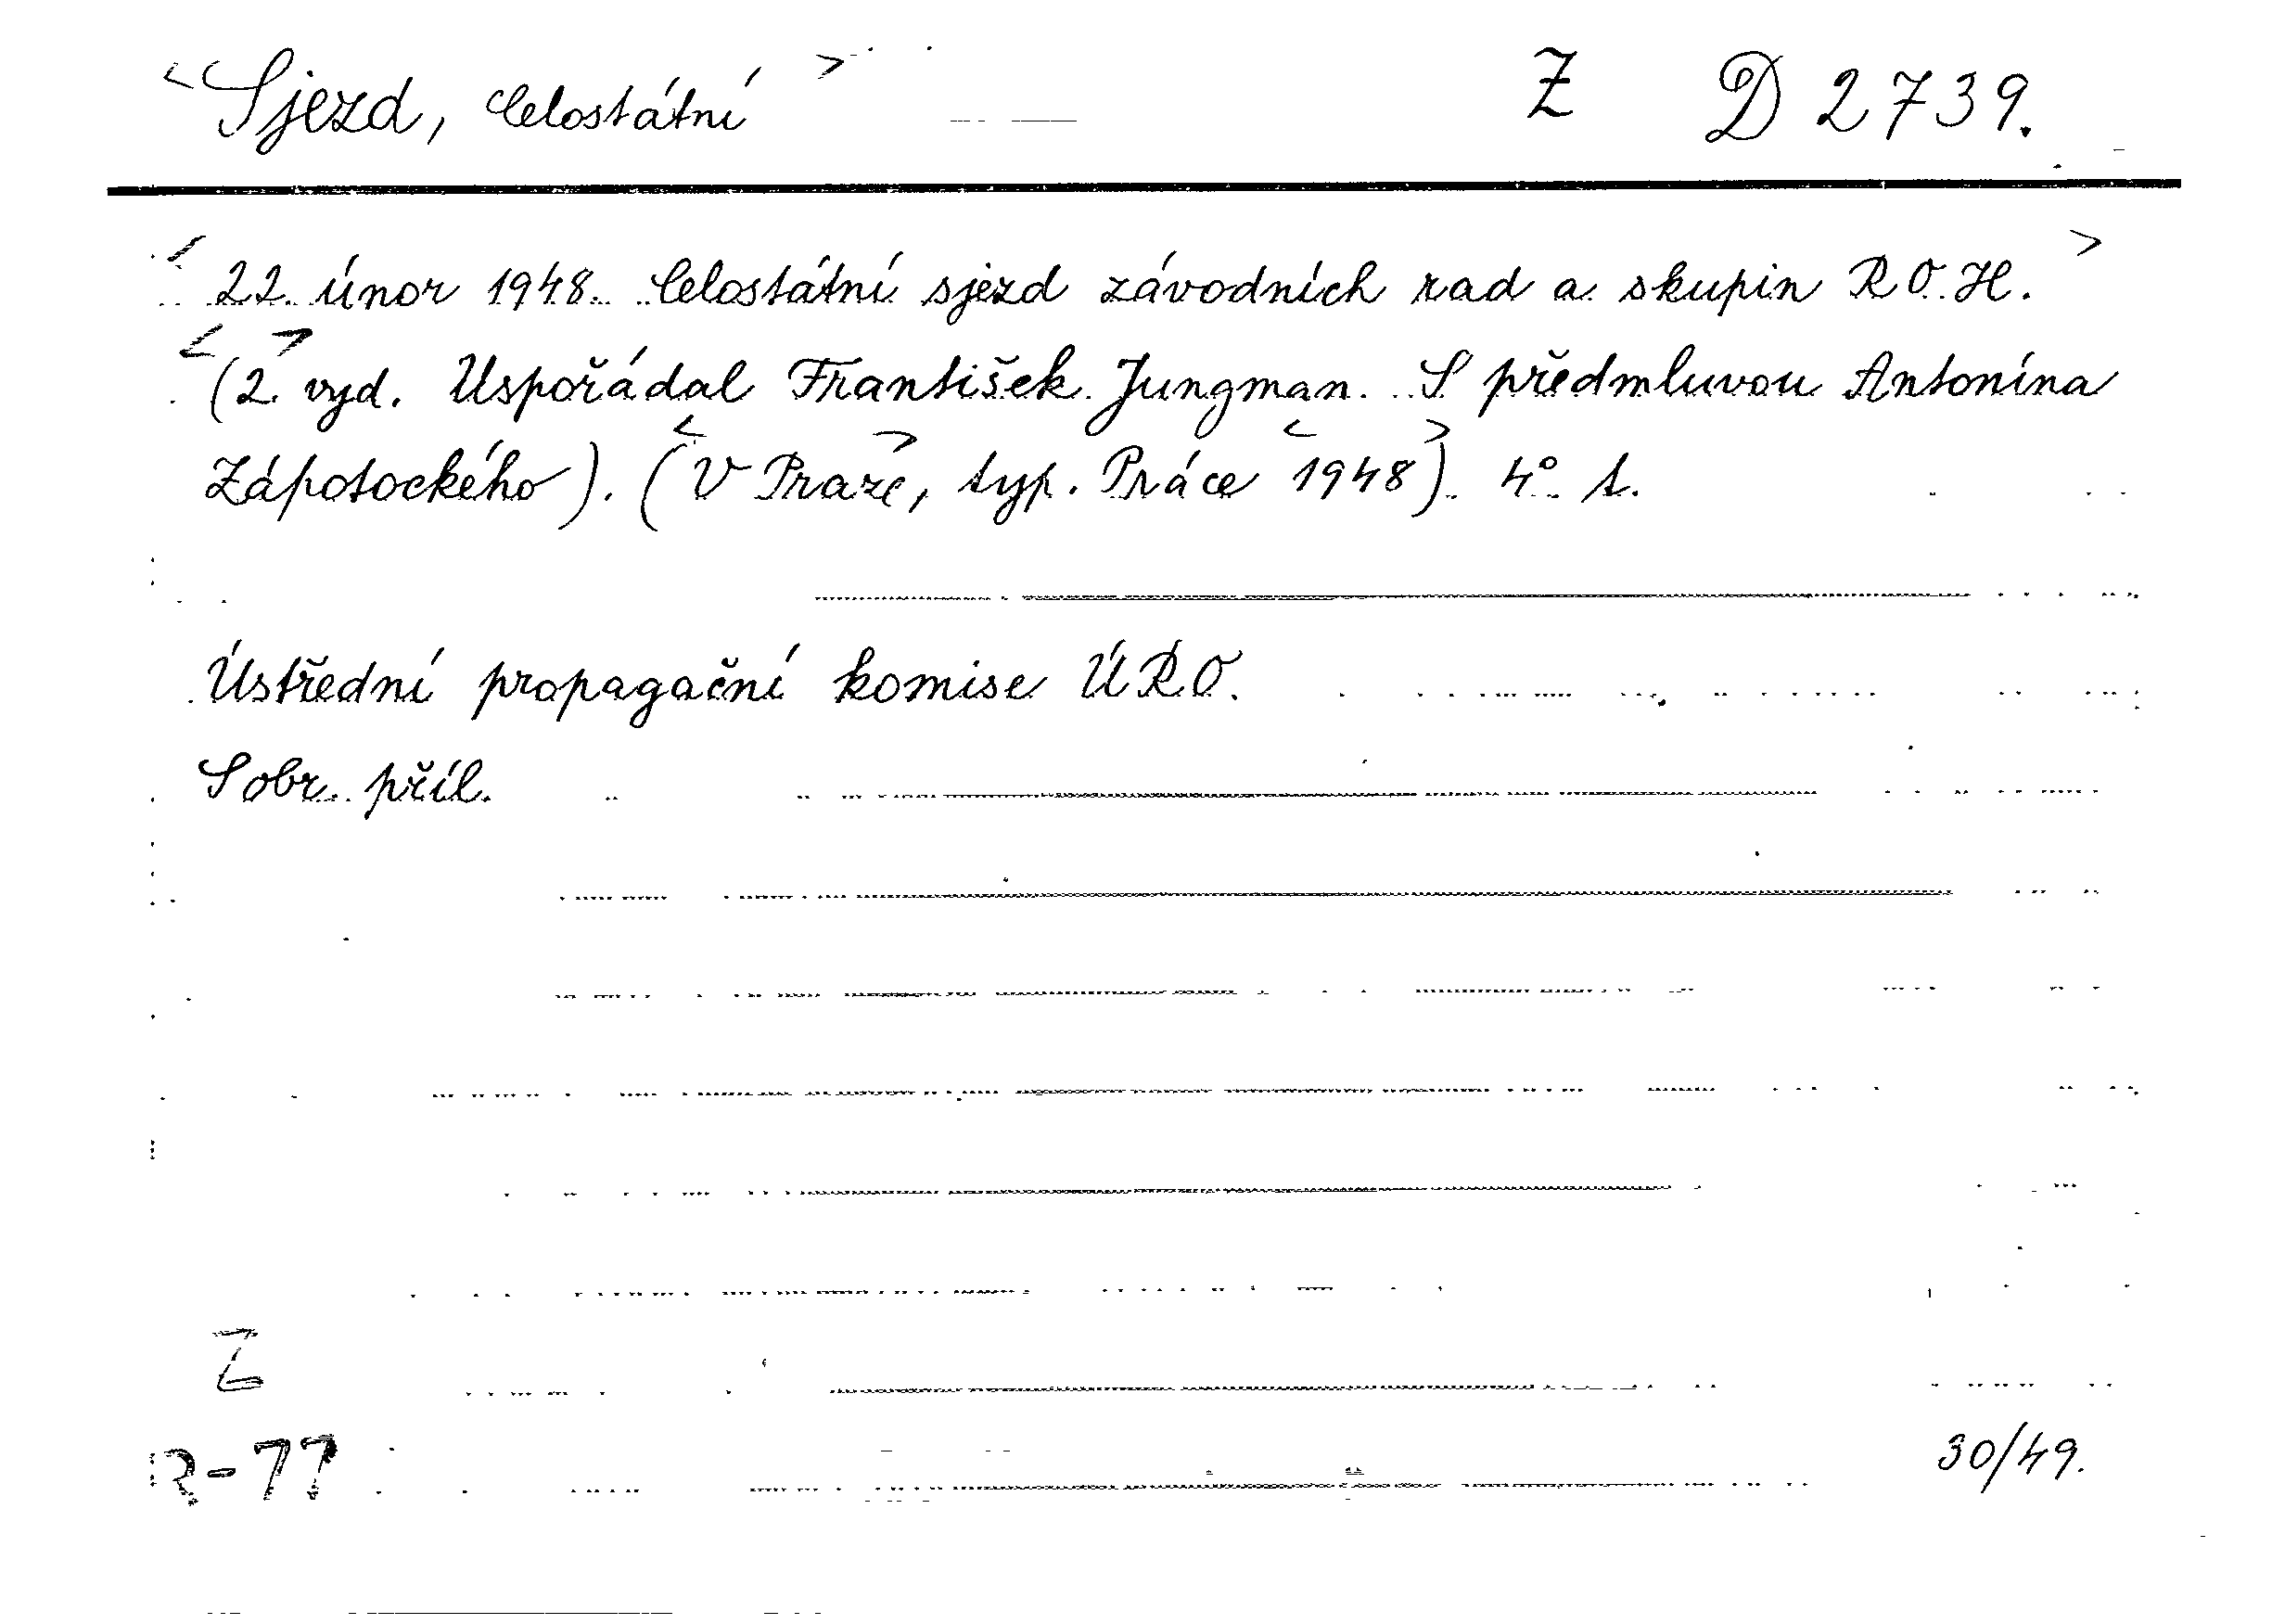 <Sjezd, celostátní> Z D 2739.
<22. únor 1948. Celostátní sjezd závodních rad a skupin R.O.H.>
<(2.> vyd. Uspořádal František Jungman. S předmluvou Antonína
Zápotockého). (<V Praze>, typ. Práce <1948>). 4° s.
Ústřední propagační komise ÚRO.
S obr. příl.
Z
R-77 30/49.